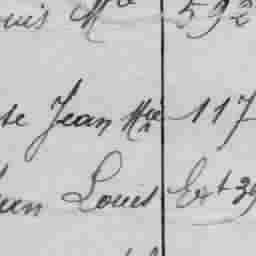 uis Mª 592
te Jean Mie 117
Louis Ext 39